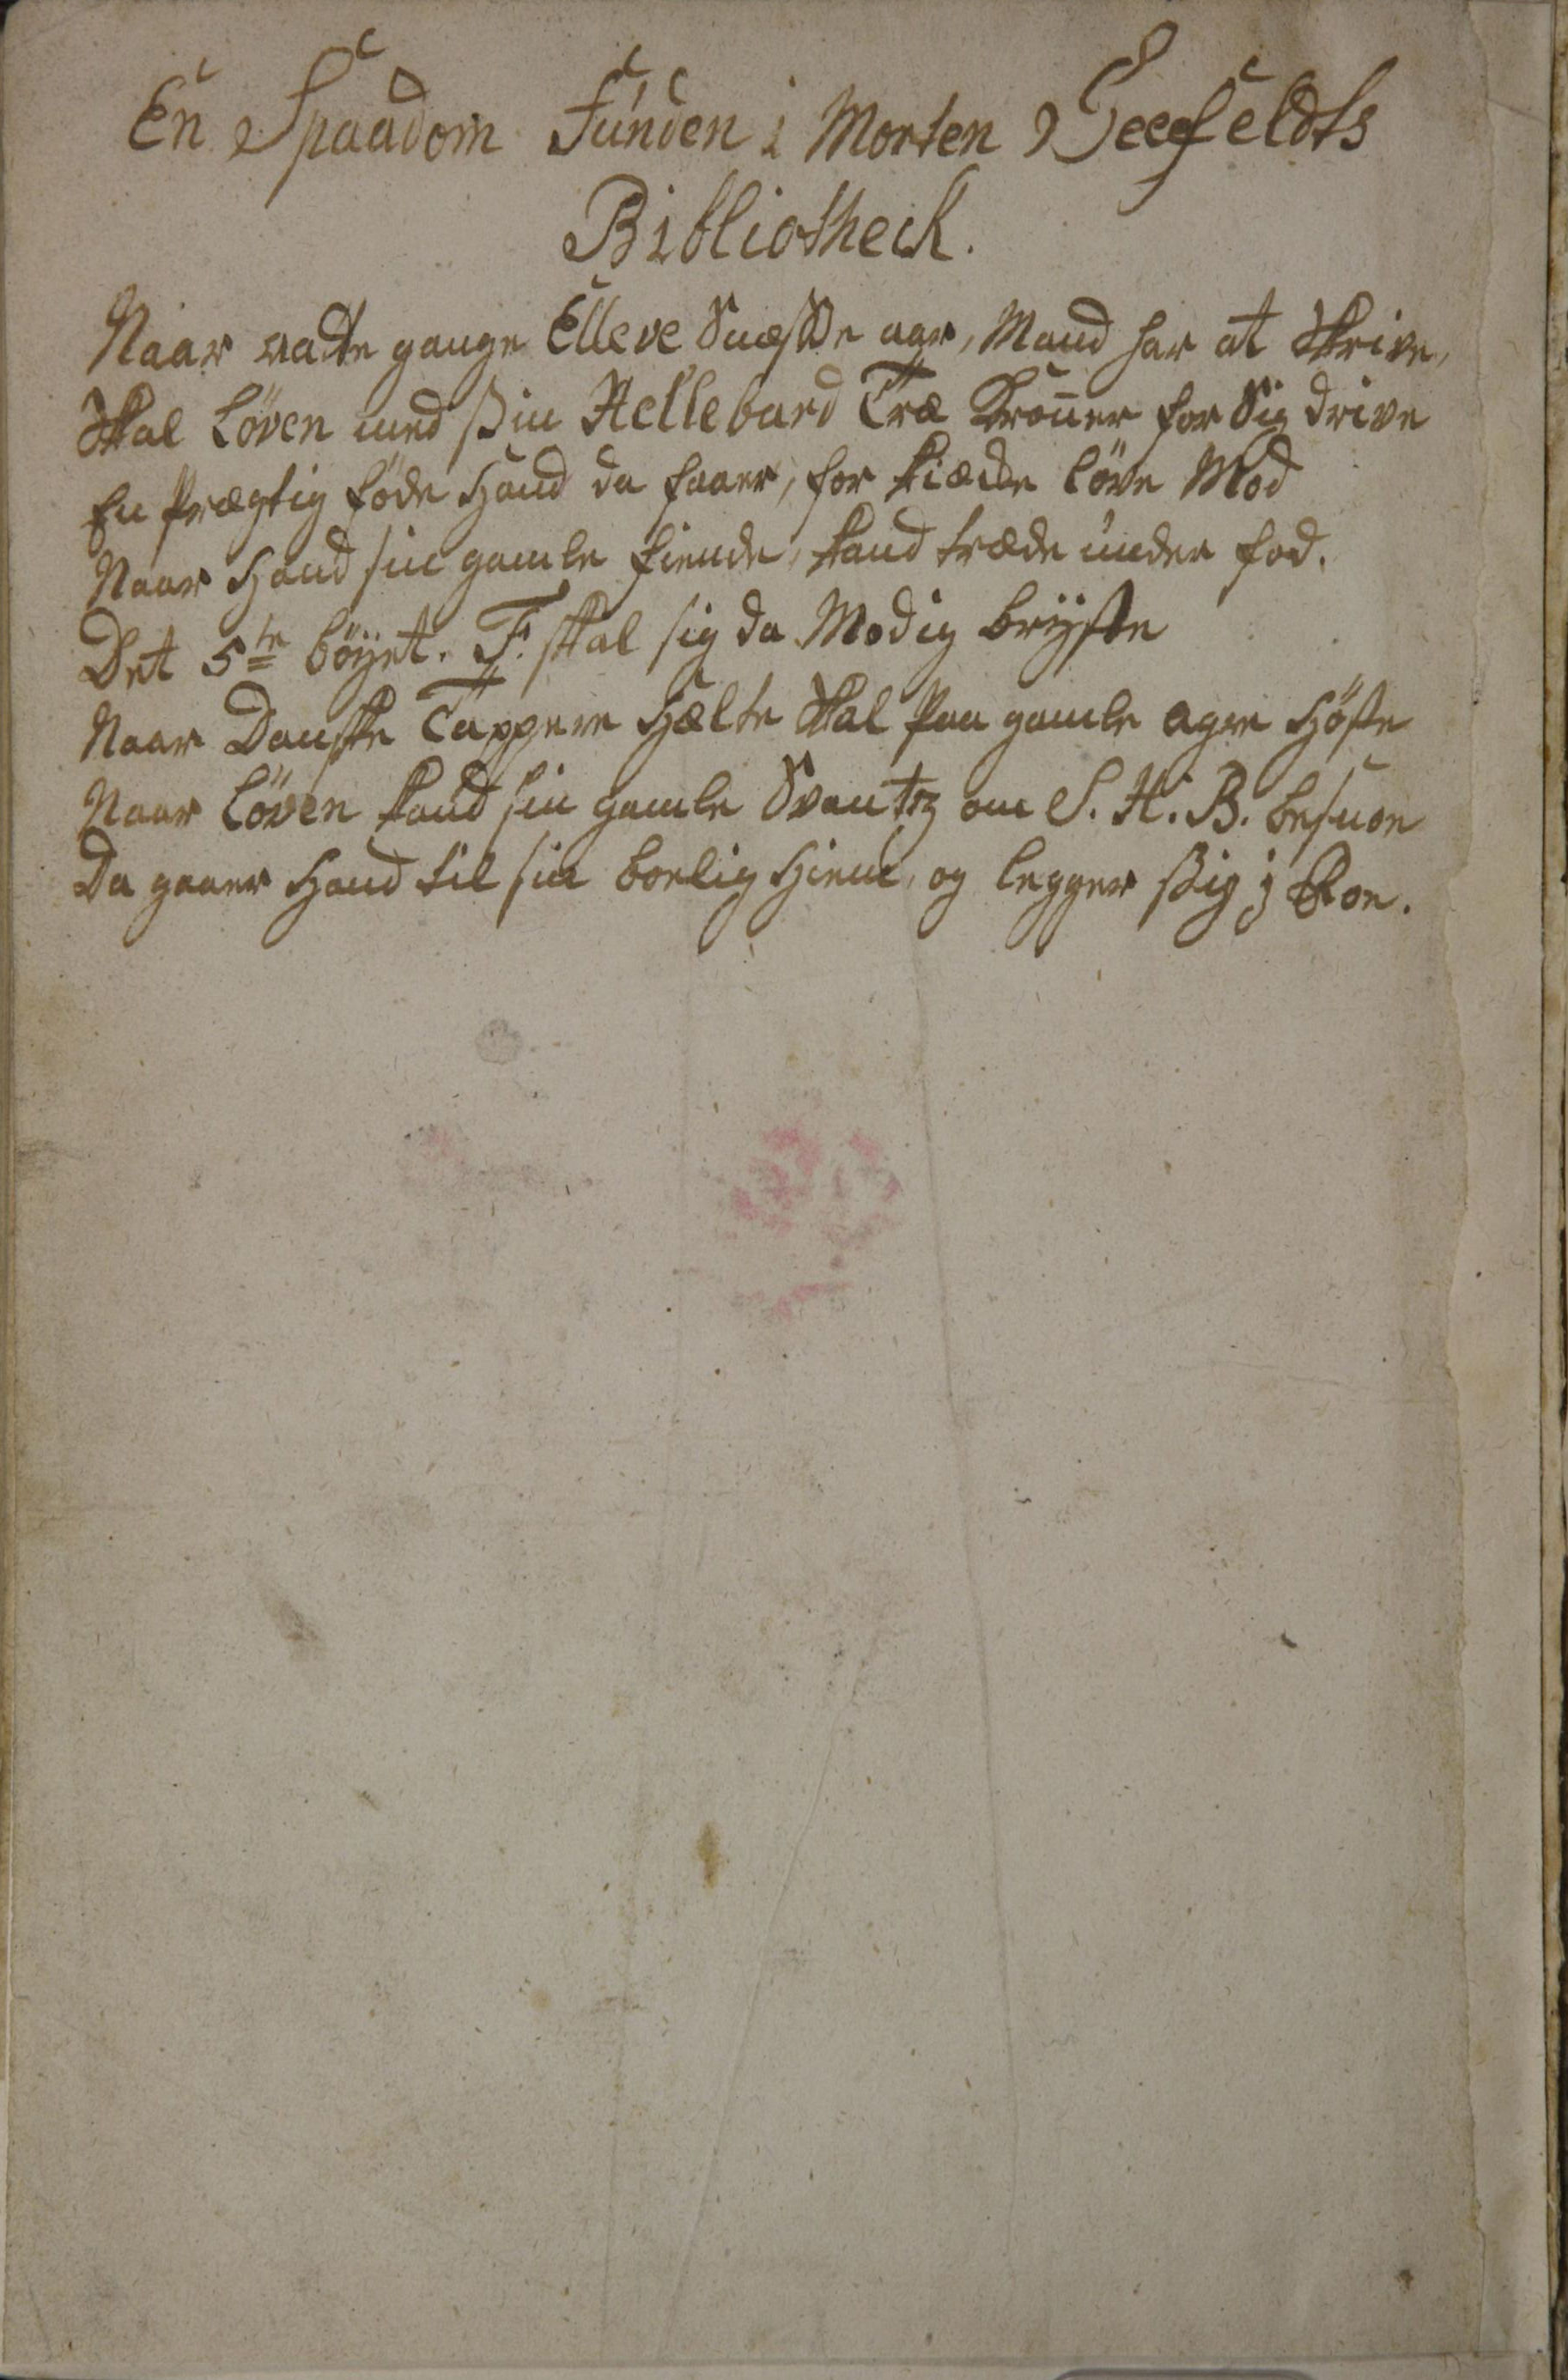 En Spaadom Funden i Morten Reenfeldts
Bibliotheck.
Naar aatte gange Elleve Snæsse aar, Mand har at Skrive,
Skal Löven med sin Hellebard Træ Kroner for Sig drive
En Prægtig föde Hand da faaer, for kiæcke löve Mod
Naar Hand sin gamle fiende, kand træde under fod.
Det 5te böyet. F. skal sig da Modig bryste
Naar Danske Tappere Hælte Skal Paa gamle agre Höste
Naar Löven kand sin gamle Svantz om S. H. B. besnoe
Da gaaer Hand til sin boelig Hiem, og legger sig i Roe.